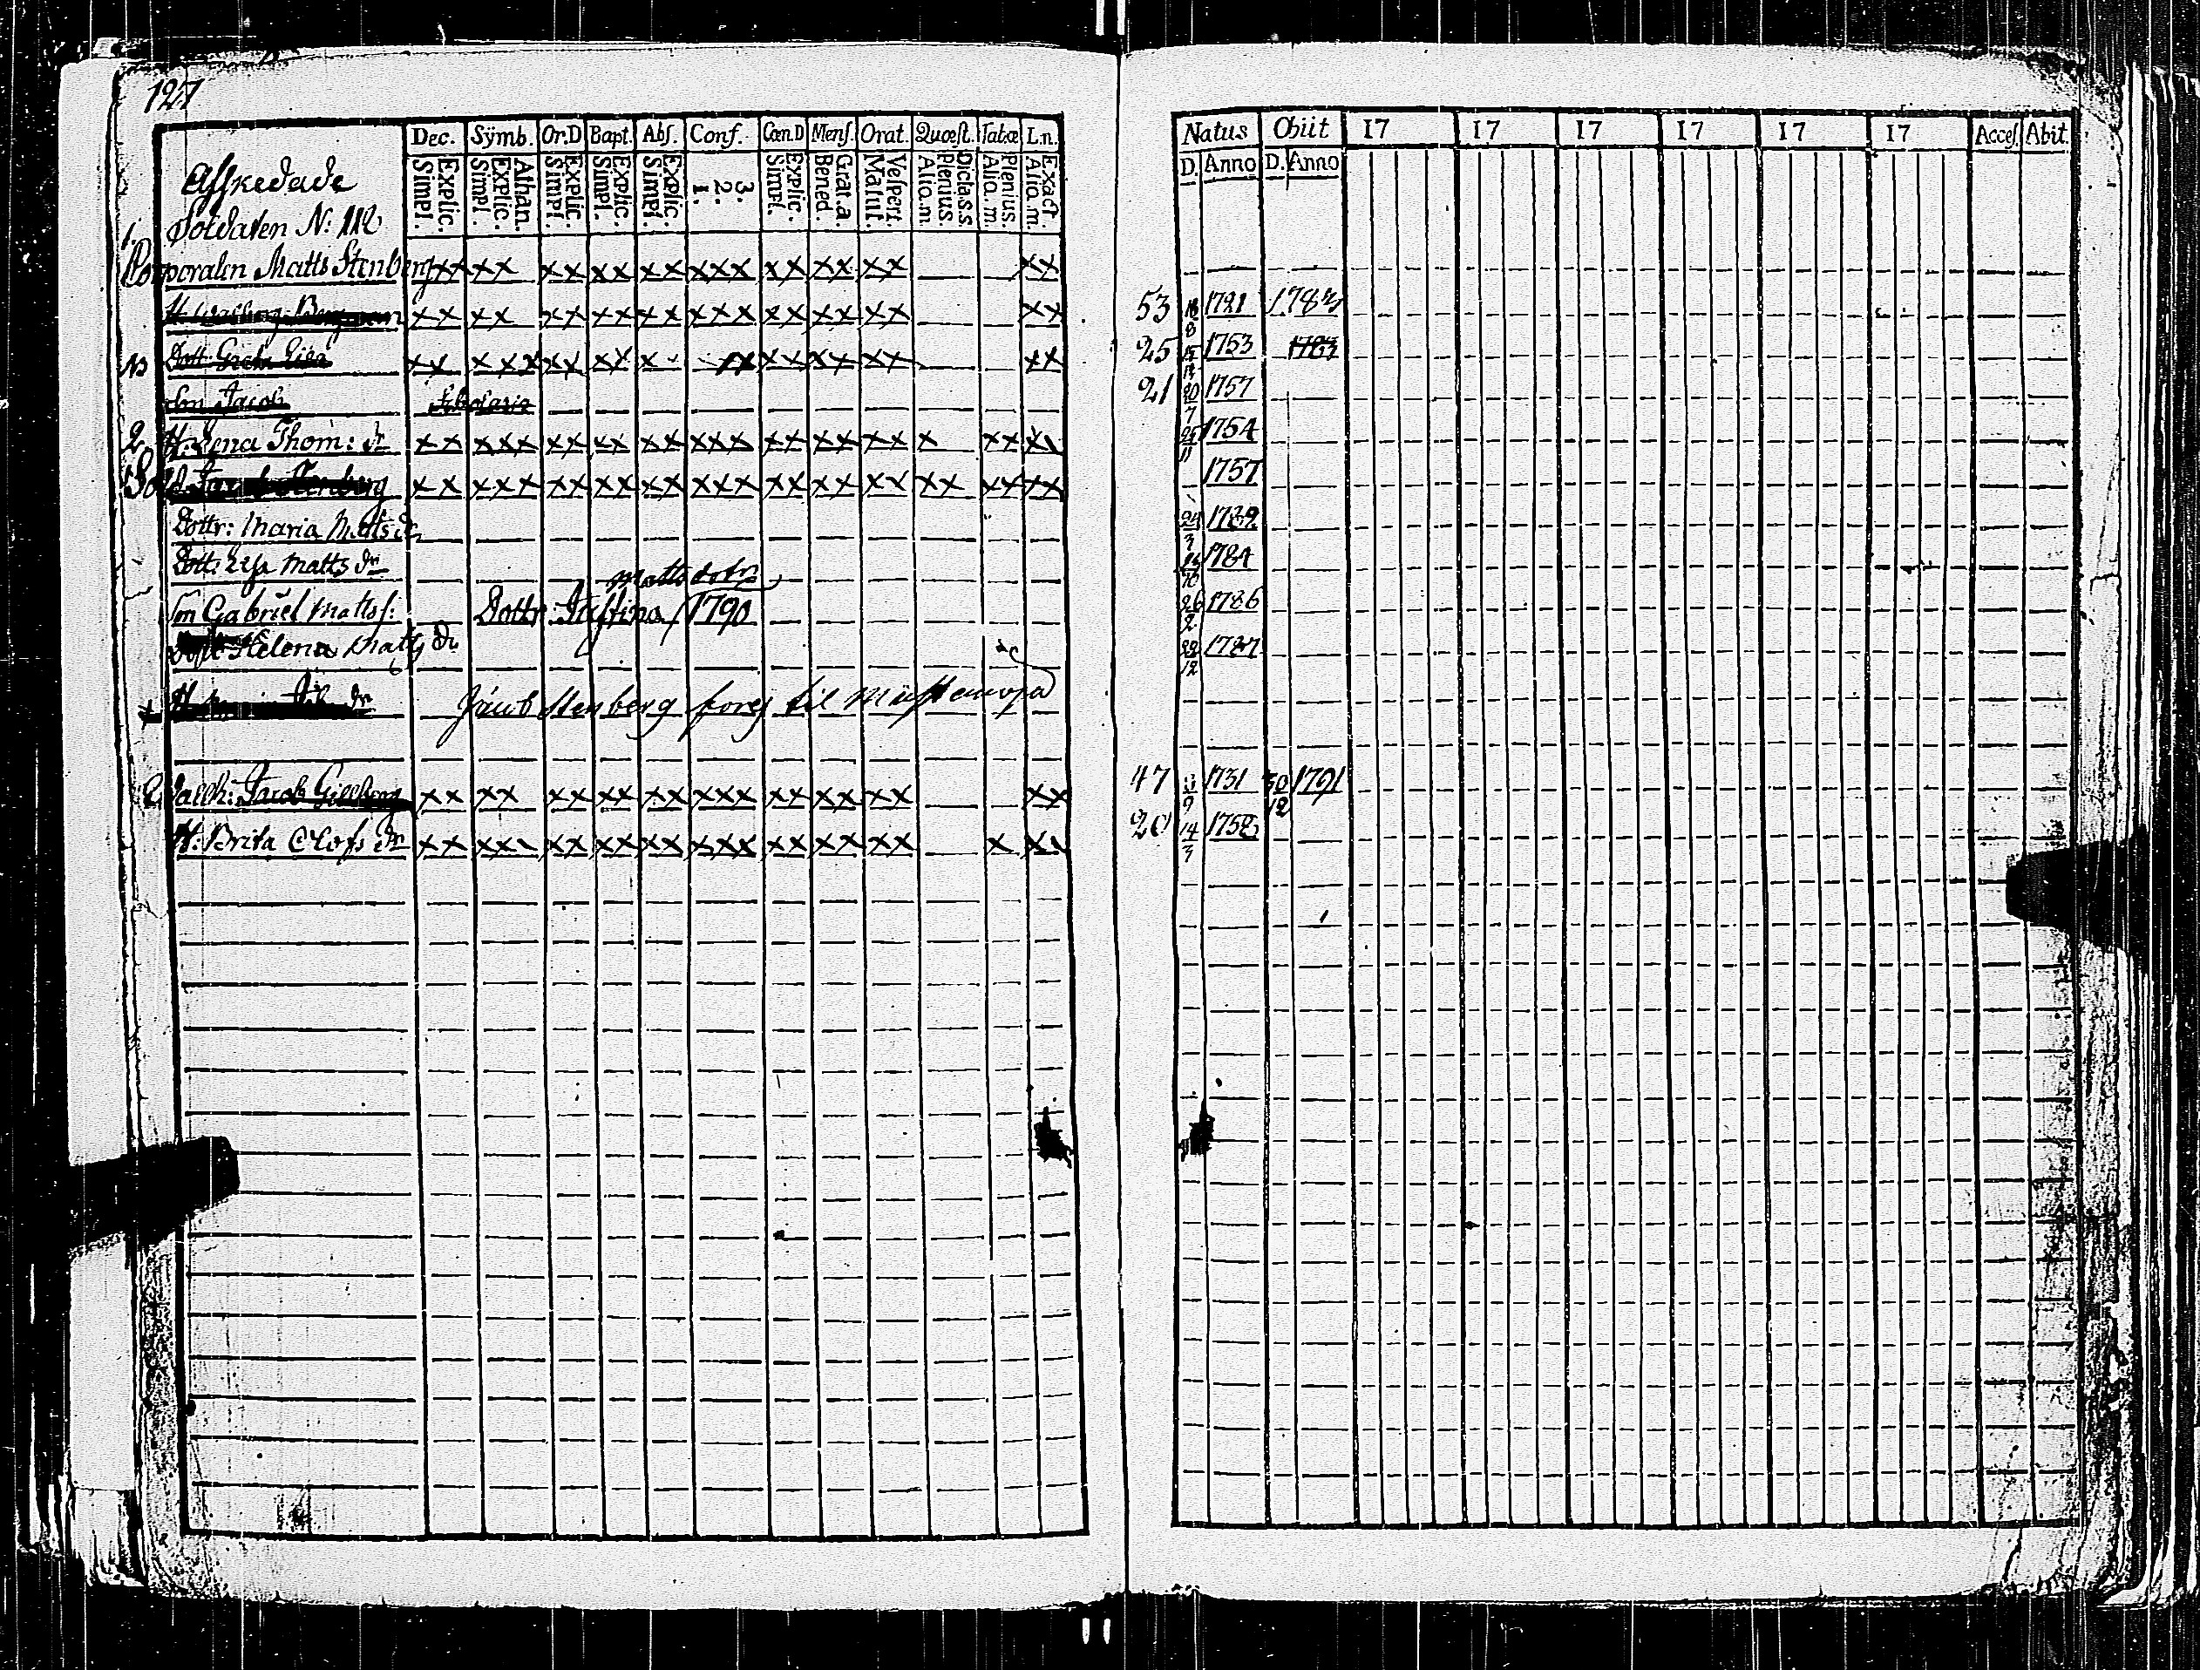 127
Dec. Sÿmb. Or.D Bapt. Abs. Conf. Cœn.D Mens. Orat. Quæst. Tabæ L.n.
Explic. Simpl. Athan. Explic. Simpl. Explic Simpl Explic. Simpl. Explic. Simpl 3. 2. 1. Explic. Simpl. Grat.a Bened. Vespert. Matut. Dicta.s.s. Plenius Aliq.m Plenius. Aliq.m. Exact. Aliq.m.
Afskedade
Soldaten N: 112
1 Corporalen Matts Stenberg xx xx xx xx xx xxx xx xx xx xx
H Walborg xx xx xx xx xx xxx xx xx xx xx
Dott: Greta Lisa xx xxx xx xx x xx xx xx xx xx
Son Jacob
2 H: Lena Thom: dr xx xxx xx xx xx xxx xx xx xx x xx xx
Sold Stenberg xx xxx xx xx xx xxx xx xx xx xx xx xx
Dottr: Maria Matts dr
Dott: Lisa Matts dr
Matts dotr
Son Gabriel Matts s: Dottr: Justina 1790
Helena Matts dr
H dr Jacob Stenberg
Jacob Gillberg xx xx xx xx xx xxx xx xx xx xx
H: Brita Olofs dr xx xxx xx xx xx xxx xx xx xx x xx
Natus Obiit 17 17 17 17 17 17 Acces. Abit.
D. Anno D. Anno
53 1721 1782
8
25 1753 1783
21 20 1757
7
1754
11
1757
24 1782
3
1784
10
26 1786
2
22 1787
12
47 1731 30 1791
9 12
14 1752
3